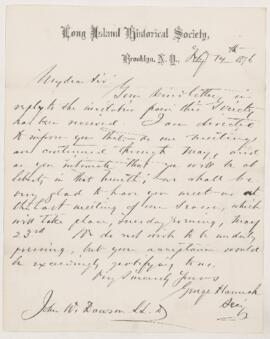 Long Island Historical Society,
Brooklyn, N. Y., Feby 14th 1876
My dear Sir
Your kind letter in
reply to the invitation from this Society
has been received. I am directed
to inform you that as our meetings
are continued through May, and
as you intimate that you will be at
liberty in that month, we shall be
very glad to have you meet us at
the last meeting of our season, which
will take place, Tuesday evening, May
23rd. We do not wish to be unduly
pressing, but your acceptance would
be exceedingly gratifying to us.
Very Sincerely Yours
George Hannah
John W. Dawson LL.D.